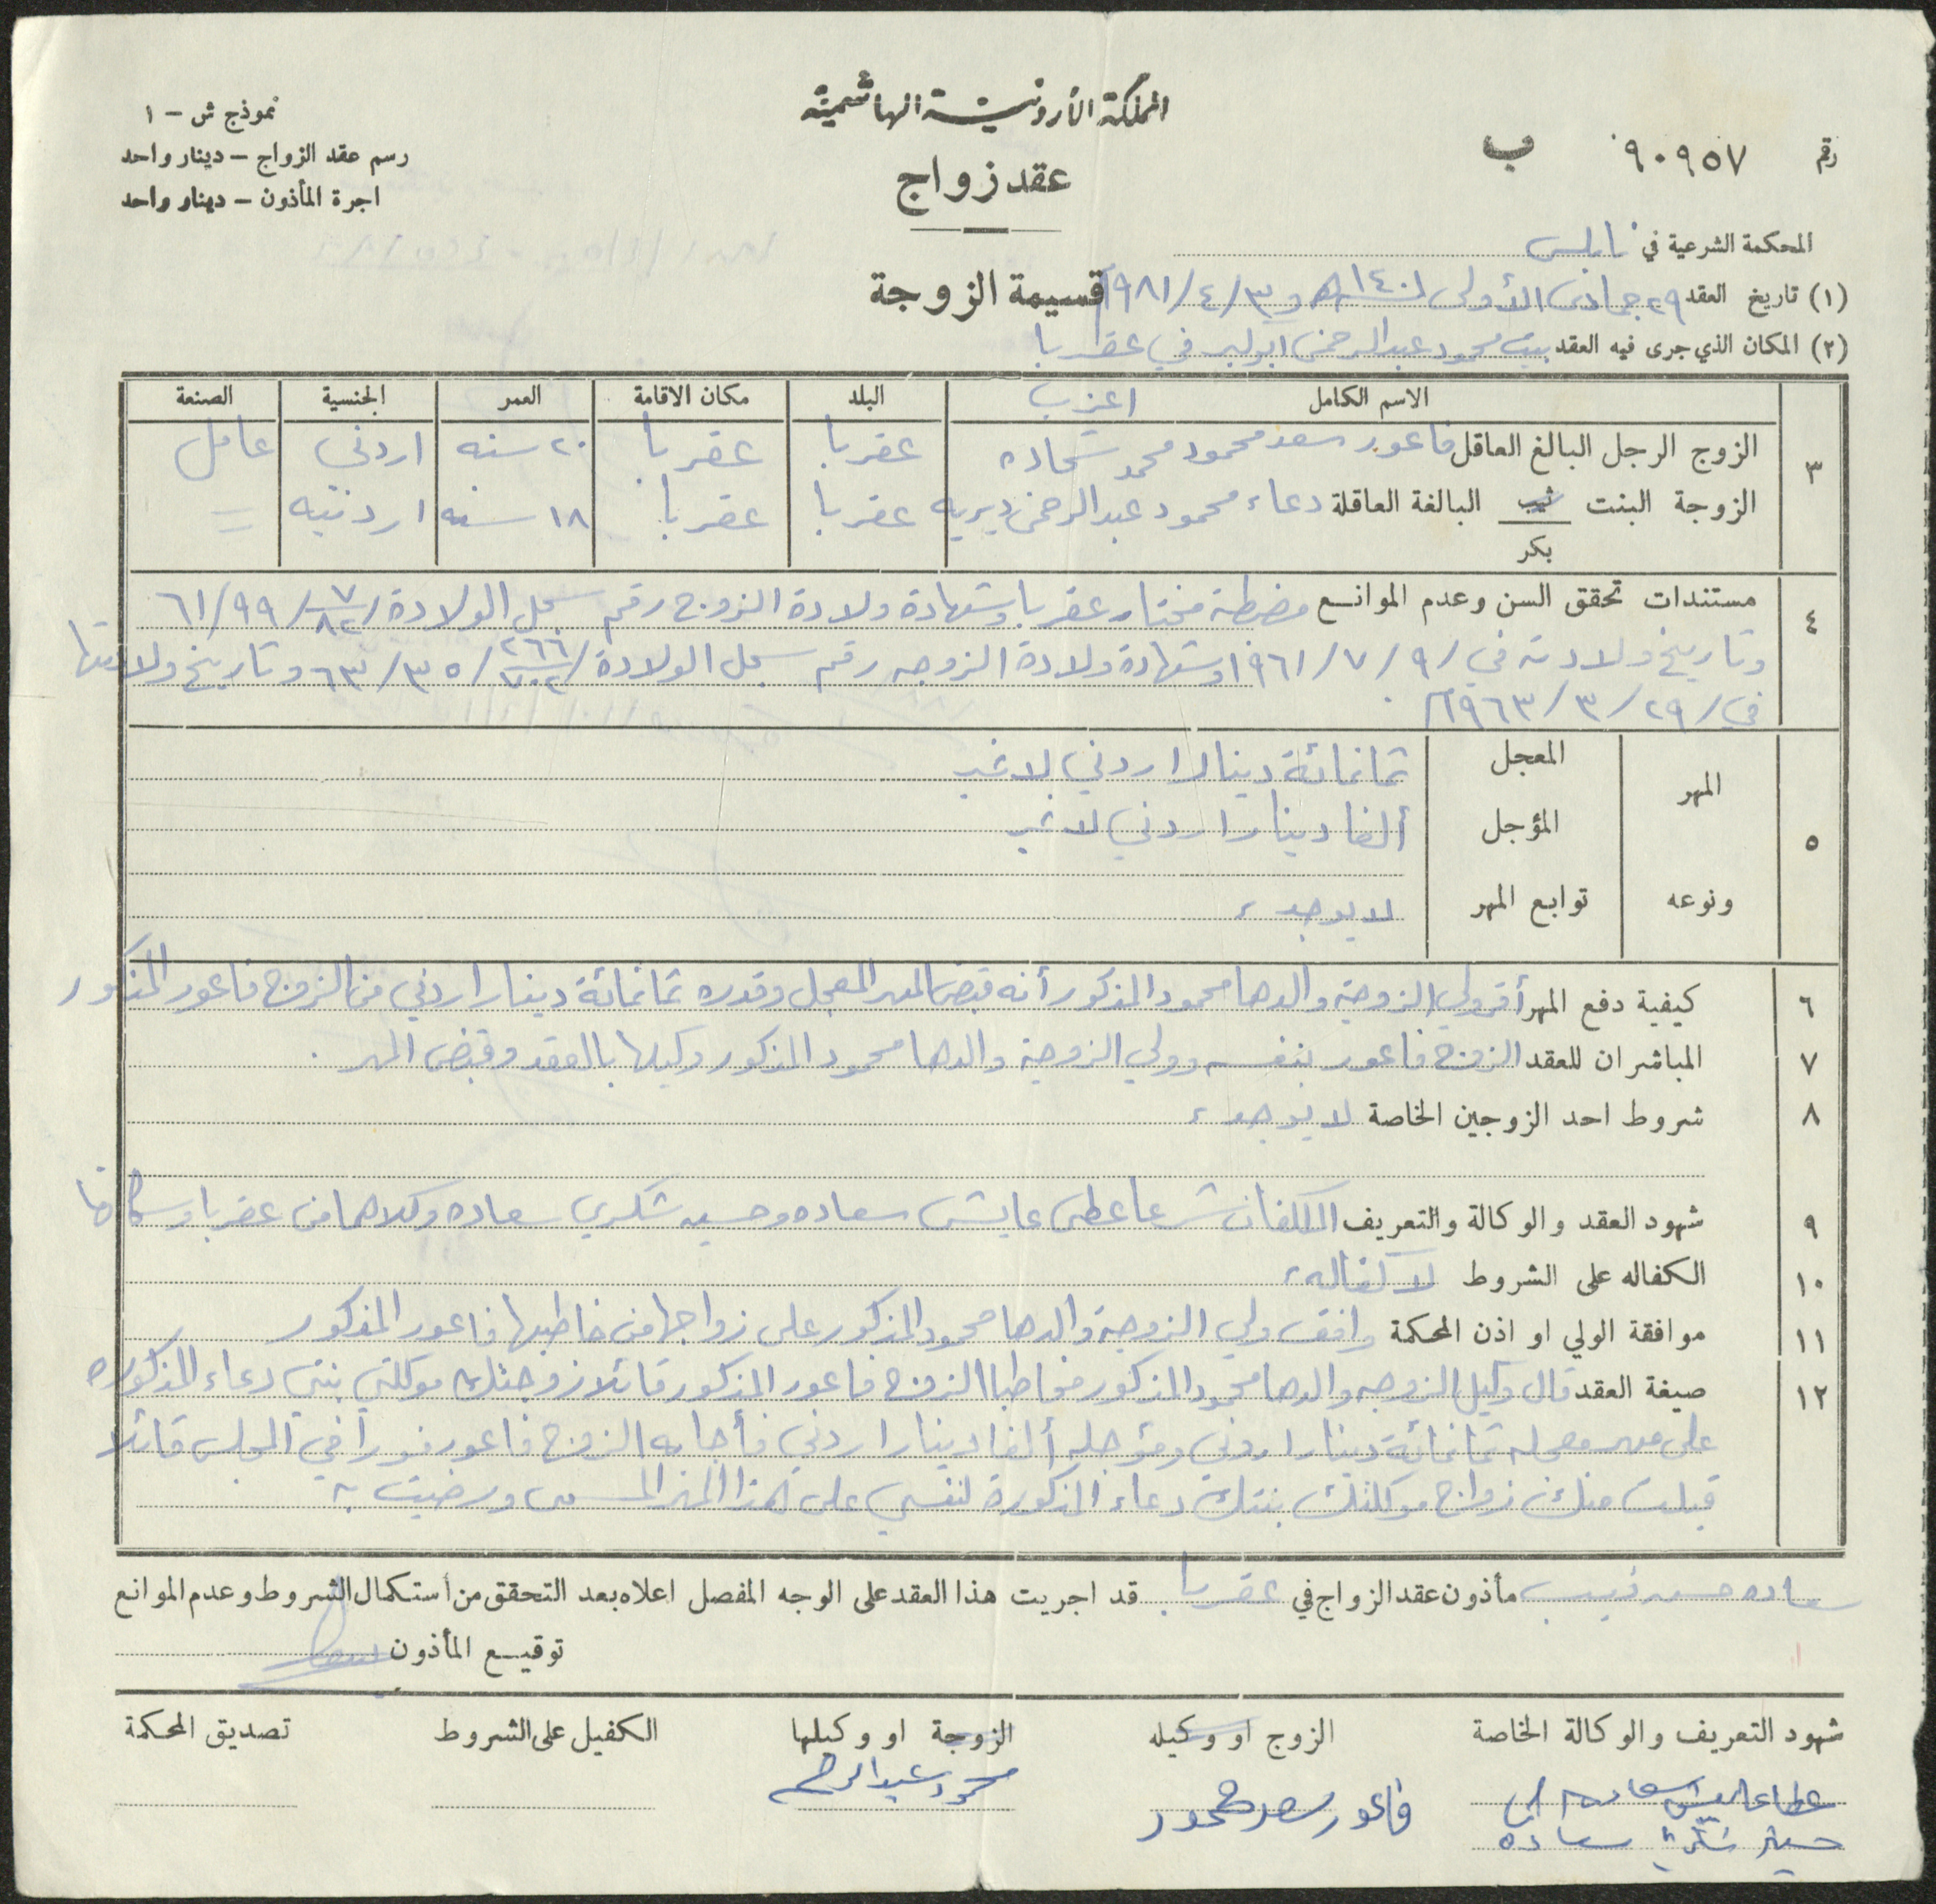 المملكة الأردنية الهاشمية
نموذج ش - ١
رسم عقد الزواج - دينار واحد
اجرة المأذون - دينار واحد
رقم ٩٠٩٥٧ ب
عقد زواج
المحكمة الشرعية في نابلس
قسيمة الزوجة
(١) تاريخ العقد ٢٩ جمادى الأولى ١٤٠١هـ و ٣/٤/١٩٨١
(٢) المكان الذي جرى فيه العقد بيت محمود عبدالرحمن ابو لبد في عقربا
الاسم الكامل اعزب البلد مكان الاقامة العمر الجنسية الصنعة
٣ الزوج الرجل البالغ العاقل فاعور سعد محمود محمد شحاده عقربا عقربا ٢٠ سنه اردني عامل
الزوجة البنت ثيب البالغة العاقلة دعاء محمود عبدالرحمن ديريه عقربا عقربا ١٨ سنه اردنيه =
بكر
٤ مستندات تحقق السن وعدم الموانع مضبطة مختار عقربا وشهادة ولادة الزوج رقم سجل الولادة / ٧/٨٢/٩٩/٦١
وتاريخ ولادته في /٩/٧/١٩٦١ وشهادة ولادة الزوجه رقم سجل الولادة / ٢٦٦/٧٠٢/٣٥/٦٣ وتاريخ ولادتها
في /٢٩/٣/١٩٦٣م
٥ المهر ونوعه
المعجل ثمانمائة دينار اردني لا غير
المؤجل ألفا دينار اردني لا غير
توابع المهر لا يوجد
٦ كيفية دفع المهر أقر ولي الزوجة والدها محمود المذكور أنه قبض المهر المعجل وقدره ثمانمائة دينار اردني من الزوج فاعور المذكور
٧ المباشران للعقد الزوج فاعور بنفسه وولي الزوجة والدها محمود المذكور وكيلها بالعقد وقبض المهر.
٨ شروط احد الزوجين الخاصة لا يوجد
٩ شهود العقد والوكالة والتعريف المكلفان شرعا عطى عايش سعاده وحسين شكري سعاده وكلاهما من عقربا وسكانها
١٠ الكفاله على الشروط لا كفاله
١١ موافقة الولي او اذن المحكمة وافق ولي الزوجة والدها محمود المذكور على زواجها من خاطبها فاعور المذكور
١٢ صيغة العقد قال وكيل الزوجه والدها محمود المذكور مخاطبا الزوج فاعور المذكور قائلا زوجتك موكلتي بنتي دعاء المذكوره
على مهر معجله ثمانمائة دينار اردني ومؤجله ألفا دينار اردني فأجابه الزوج فاعور فورا في المجلس قائلا
قبلت منك زواج موكلتك بنتك دعاء المذكورة لنفسي على هذا المهر المسمى ورضيت به
سعاده حسين نجيب مأذون عقد الزواج في عقربا قد اجريت هذا العقد على الوجه المفصل اعلاه بعد التحقق من أستكمال الشروط وعدم الموانع
توقيع المأذون
شهود التعريف والوكالة الخاصة الزوج او وكيله الزوجة او وكيلها الكفيل على الشروط تصديق المحكمة
عطا عايش سعاده فاعور سعد محمود محمود عبدالرحمن
حسين شكري سعاده